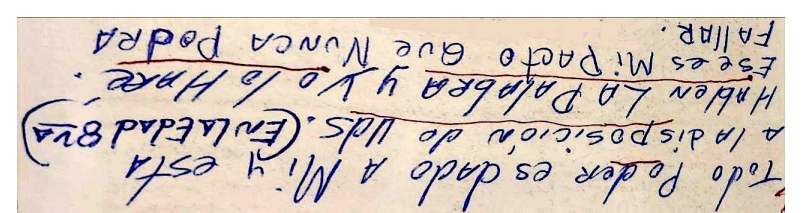 Todo Poder es dado A Mi, y esta
A la disposición do Uds. (En LA EdAd 8va)
HAblen LA PAlAbRA y yo lo HARE.
Ese es Mi PACto Que NuNcA PodRA
FAllAR.